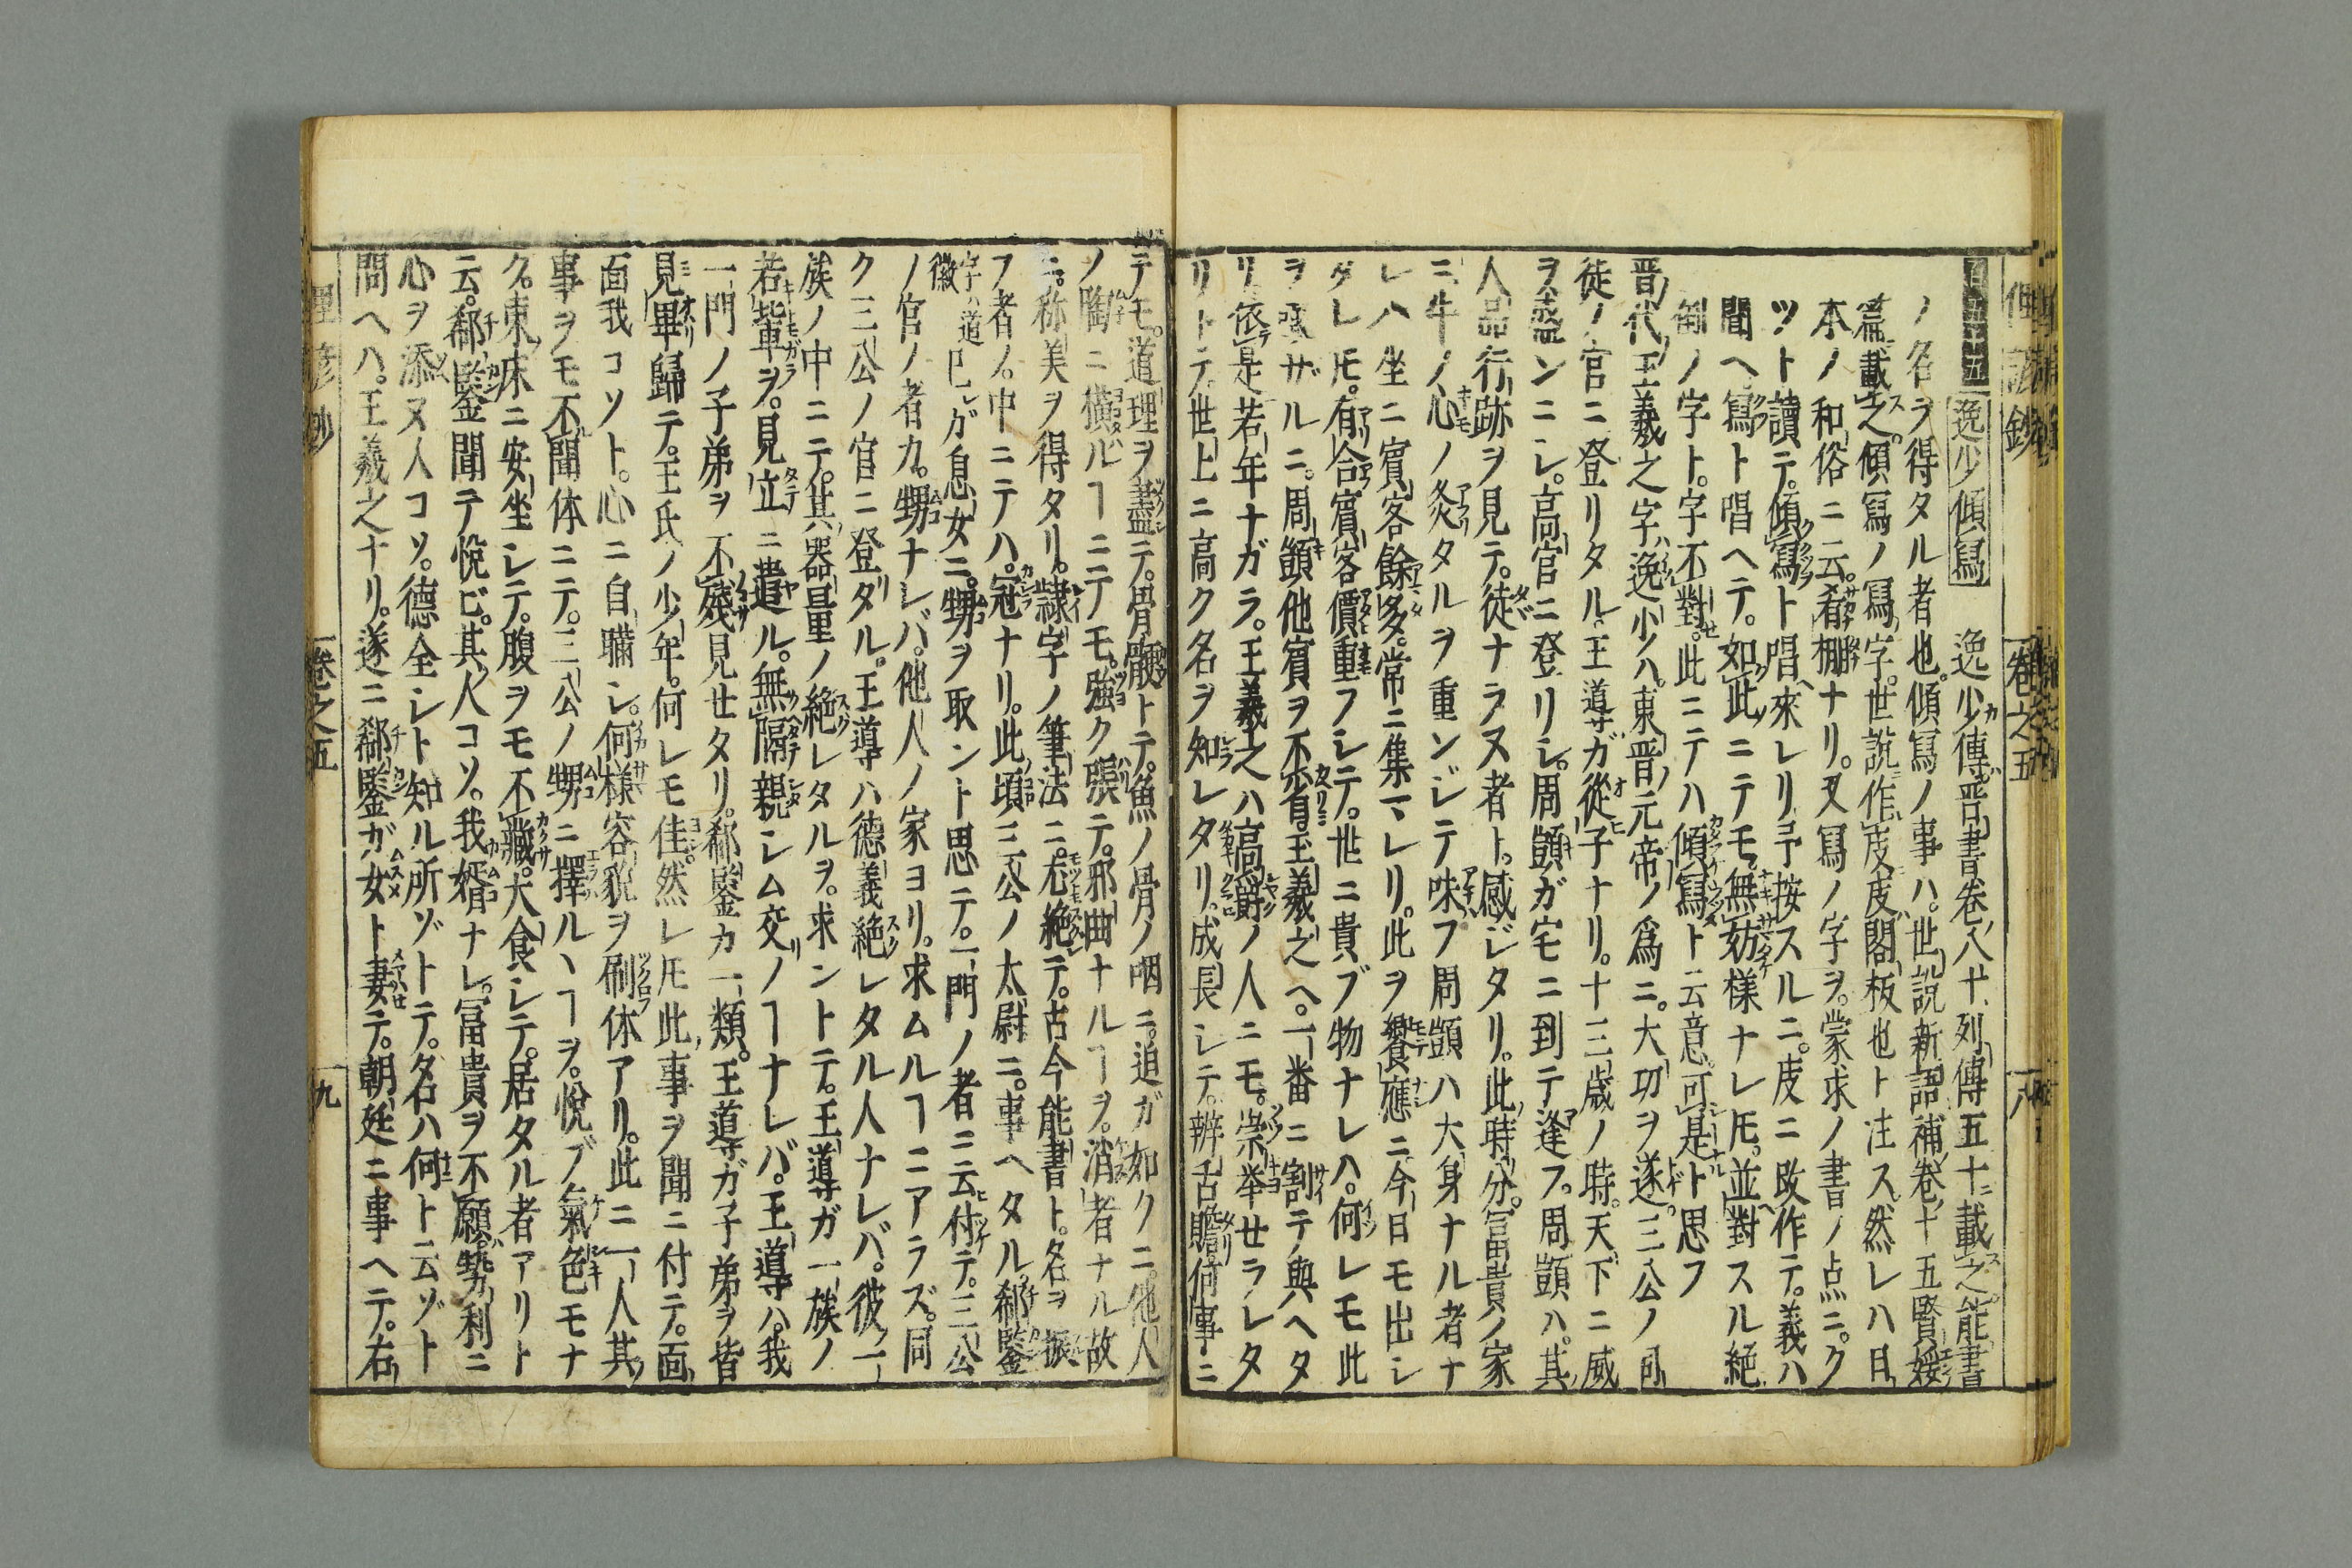 逸少傾寫 逸少傳晋書卷八十列傳五十ニ載之能書
ノ名ヲ得タル者也。傾寫ノ事ハ。世說新語補卷十五賢媛
篇載之。傾寫ノ寫字。世說作庋。庋閣板也ト注ス。然レハ日
本ノ和俗ニ云。肴棚ナリ。又寫ノ字ヲ。蒙求ノ書ノ点ニ。ク
ツト讀テ。傾寫ト唱ヘ來レリ予按スルニ。庋ニ改作テ。義ハ
聞ヘ。寫ト唱ヘテ。如此ニテモ。無妨樣ナレ𪜈。並對スル絕
倒ノ字ト。字不對。此ニテハ傾寫ト云意可是ト思フ
晋代王羲之字逸少ハ。東晋元帝ノ爲ニ。大功ヲ遂。三公ノ司
徒ノ官ニ登リタル。王導ガ從子ナリ。十三歳ノ時。天下ニ威
ヲ盛ンニシ。高官ニ登リシ。周顗ガ宅ニ到テ逢フ。周顗ハ。其
人品行跡ヲ見テ。徒ナラヌ者ト。感ジタリ。此時分。冨貴ノ家
ニ。牛ノ心ノ炙タルヲ重ンジテ味フ周顗ハ大身ナル者ナ
レハ坐ニ賓客餘多。常ニ集マレリ。此ヲ饗應ニ今日モ出シ
タレ𪜈。有合賓客價重フシテ。世ニ貴ブ物ナレハ。何レモ此
ヲザルニ。周顗他賓ヲ不省。王羲之ヘ。一番ニ割テ與ヘタ
リ依是若年ナガラ。王羲之ハ高爵ノ人ニモ。崇挙セラレタ
リトテ。世上ニ高ク名ヲ知レタリ。成長シテ。辨舌贍。何事ニ
テモ。道理ヲ盡テ。骨骾トテ。魚ノ骨ノ咽ニ。迫ガ如クニ。他人
ノ胸ニ橫ルヿニテモ。強ク張テ。邪曲ナルヿヲ。消者ナル故
ニ。称美ヲ得タリ。隷字ノ筆法ニ。尤絶テ。古今能書ト。名ヲ振
フ者ノ。中ニテハ。冠ナリ。此頃三公ノ太尉ニ。事ヘタル。郗鑒
字ハ道徽 巳レガ息女ニ。甥ヲ取ント思テ。一門ノ者ニ云付テ。三公
ノ官ノ者カ。甥ナレバ。他人ノ家ヨリ。求ムルヿニアラズ。同
ク三公ノ官ニ登タル。王導ハ德義絶レタル人ナレバ。彼ノ一
族ノ中ニテ。其器量ノ絶レタルヲ。求ントテ。王導ガ一族ノ
若輩ヲ。見立ニ遣ル。無隔親シム交ノヿナレバ。王導ハ。我
一門ノ子弟ヲ不殘見セタリ。郗鑒カ一類。王導ガ子弟ヲ皆
見畢歸テ。王氏ノ少年。何レモ佳。然レ𪜈此事ヲ聞ニ付テ。面
面我コソト。心ニ自矚シ。何樣容貌ヲ刷体アリ。此ニ一人其
事ヲモ不聞体ニテ。三公ノ甥ニ擇ルヽヿヲ。悅ブ氣色モナ
ク。東床ニ安坐シテ。腹ヲモ不藏。大食シテ。居タル者アリト
云。郗鑒聞テ悅ビ。其人コソ。我婿ナレ。冨貴ヲ不願。勢利ニ
心ヲ添ヌ人コソ。德全シト知ル所ゾトテ。名ハ何ト云ゾト
問ヘハ。王羲之ナリ。遂ニ郗鑒ガ女ト妻テ。朝廷ニ事ヘテ。右
卷之五
八
卷之五
九